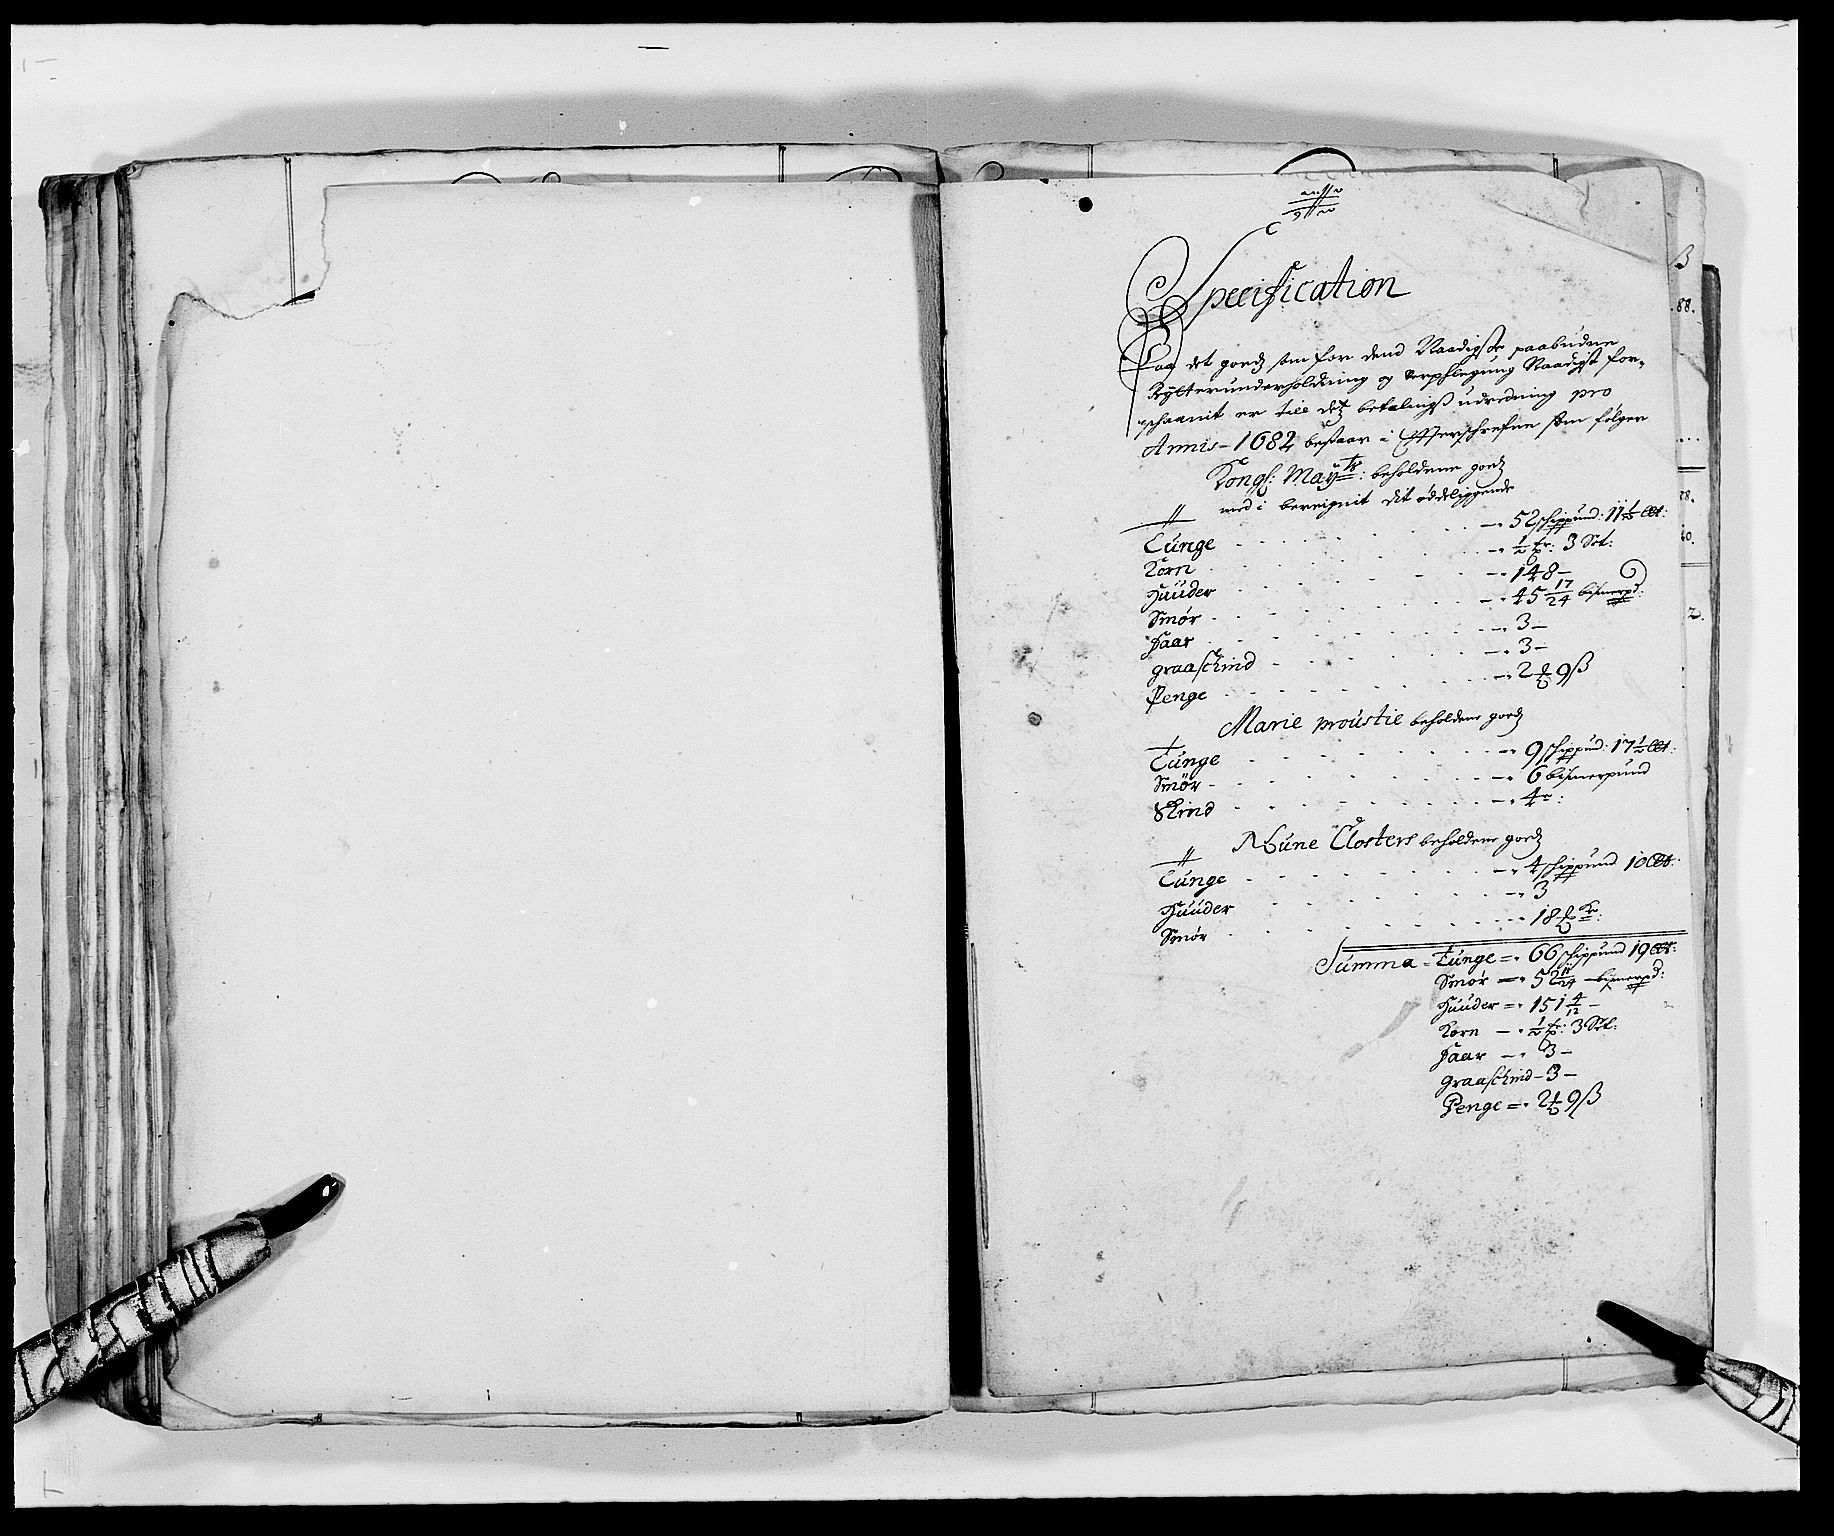 Specification
Paa det goedz som for dend Naadigste paabudne
Rytterunderholdning og verpflegung Naadigst for-
schaanit er till detz betalings udredning pro
Annis - 1682 bestaar i Effterschrefne som følger
Kongl: Mayts: beholdene goedz
med i bereignit dit øddeliggende
Tunge - 52 schippund: 11½ Lt:
Korn - ½ tr: 3 Set:
Huuder - 148 -
Smør - 45 17/24 bismerpd:
Faar - 3 -
graaschind - 3 -
Penge - 2 9 ß
Marie proustie beholdene goedz
Tunge - 9 schippund: 17½ Lt:
Smør - 6 bismerpund
Skind - 4
Closters beholdene goedz
Tunge - 4 schippund 10 Lt:
Huuder - 3
Smør - 18
Summa = Tunge = 66 schippund 19 Lt:
Smør = 52 11/24 bismerpd:
Huuder = 151 4/12 -
Korn - ½ tr: 3 Set:
Faar - 3 -
graaschind - 3 -
Penge = 2 9 ß
88.
2.